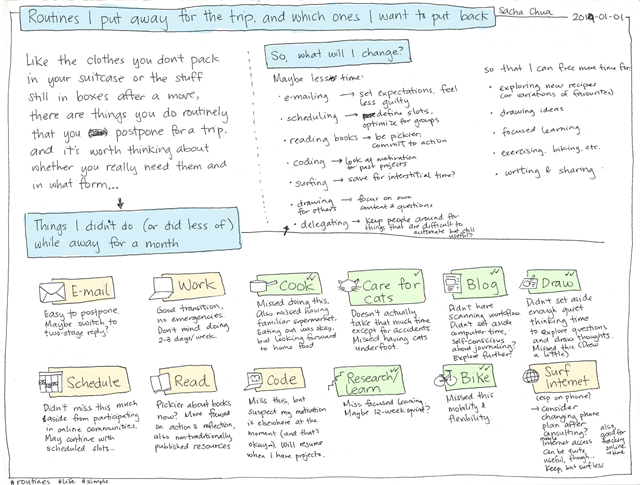 Routines I put away for the trip, and which ones I want to put back
Sacha Chua
2014-01-01
Like the clothes you don't pack
in your suitcase or the stuff
still in boxes after a move,
there are things you do routinely
that you postpone for a trip,
and it's worth thinking about
whether you really need them and
in what form...
So, what will I change?
Maybe less time:
• e-mailing → set expectations, feel
less guilty
• scheduling → define slots,
optimize for groups
• reading books → be pickier,
commit to action
• coding → look at motivation
for past projects
• surfing → save for interstitial time?
• drawing for others → focus on own
content & questions
• delegating → keep people around for
things that are difficult to
automate but still
useful?
so that I can free more time for:
• exploring new recipes
(or variations of favourites)
• drawing ideas
• focused learning
• exercising, biking, etc.
• writing & sharing
Things I didn't do (or did less of)
while away for a month
E-mail
Easy to postpone.
Maybe switch to
two-stage reply?
Work
Good transition,
no emergencies.
Don't mind doing
2-3 days/week.
Cook
Missed doing this.
Also missed having
familiar supermarket.
Eating out was okay,
but looking forward
to home food
Care for
cats
Doesn't actually
take that much time
except for accidents.
Missed having cats
underfoot.
Blog
Didn't have
scanning workflow.
Didn't set aside
computer time.
Self-conscious
about journaling?
Explore further?
Draw
Didn't set aside
enough quiet
thinking time
to explore questions
and draw thoughts.
Missed this (Drew
a little)
Schedule
Didn't miss this much
aside from participating
in online communities.
May continue with
scheduled slots...
Read
Pickier about books
now? More focused
on action & reflection,
also nontraditionally
published resources
Code
Miss this, but
suspect my motivation
is elsewhere at the
moment (and that's
okay). Will resume
when I have projects.
Research/
Learn
Miss focused learning.
Maybe 12-week sprint?
Bike
Missed this
mobility &
flexibility
Surf
Internet
(esp on phone)
→ consider
changing phone
plan after
consulting?
Internet access
can be quite
useful, though...
Keep, but surf less
also,
good for
tracking
online
→ time
#routines #life #simple